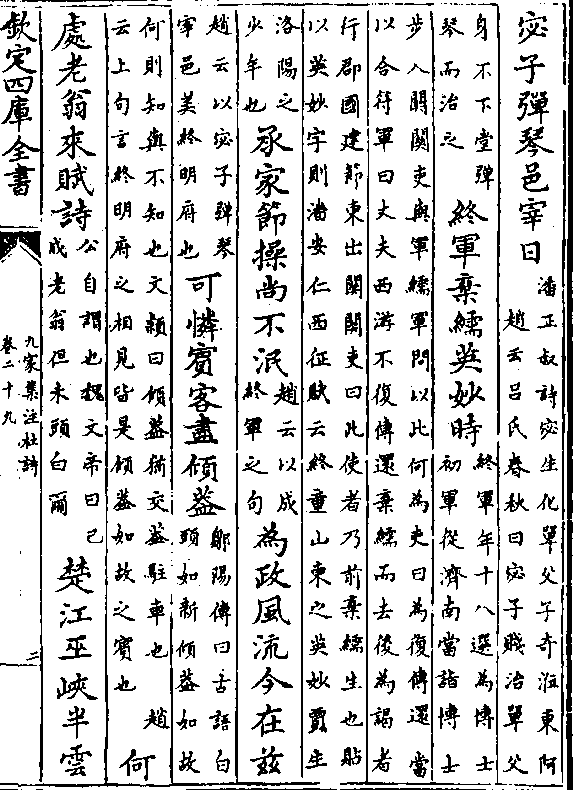 宓子彈琴邑宰日
潘正叔詩宓生化單父子奇涖東阿
趙云吕氏春秋曰宓子賤治單父
身不下堂彈
琴而治之
終軍棄繻英妙時
終軍年十八選為博士
初軍從濟南當詣博士
步入關關吏與軍繻軍問以此何為吏曰為復傳還當
以合符軍曰丈夫西游不復傳還棄繻而去後為謁者
行郡國建節東出關關吏曰此使者乃前棄繻生也貼
以英妙字則潘安仁西征賦云終童山東之英妙賈生
洛陽之
少年也
承家節操尚不泯
趙云以成
終軍之句
為政風流今在兹
趙云以宓子彈琴
宰邑美終明府也
可憐賓客盡傾葢
鄒陽傳曰古語白
頭如新傾葢如故
何則知與不知也文穎曰傾葢猶交葢駐車也 趙
云上句言終明府之相見皆是傾葢如故之賓也
何
處老翁來賦詩
公自謂也魏文帝曰已
成老翁但未頭白爾
楚江巫峽半雲
欽定四庫全書
九家集注杜詩
卷二十九
二